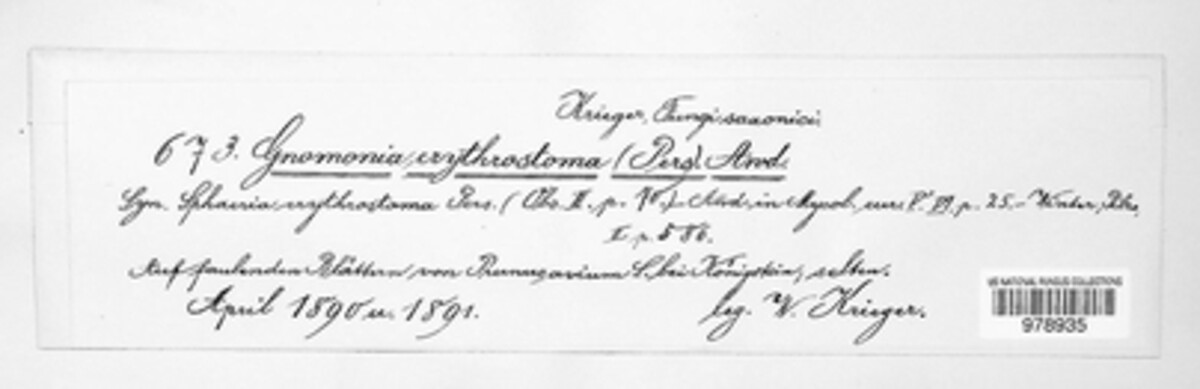 Krieger, Fungi saxonici.
673. Gnomonia erythrostoma (Pers.) Awd.
Syn. Sphaeria erythrostoma Pers. (Obs. II. p. Awd. in Mycol. eur. p. 25. – Winter, Pilze,
II. p. 586.
Auf faulenden Blättern von Prunus avium L. bei Königstein, selten.
April 1890 u. 1891. leg. W. Krieger.
US NATIONAL FUNGUS COLLECTIONS
978935